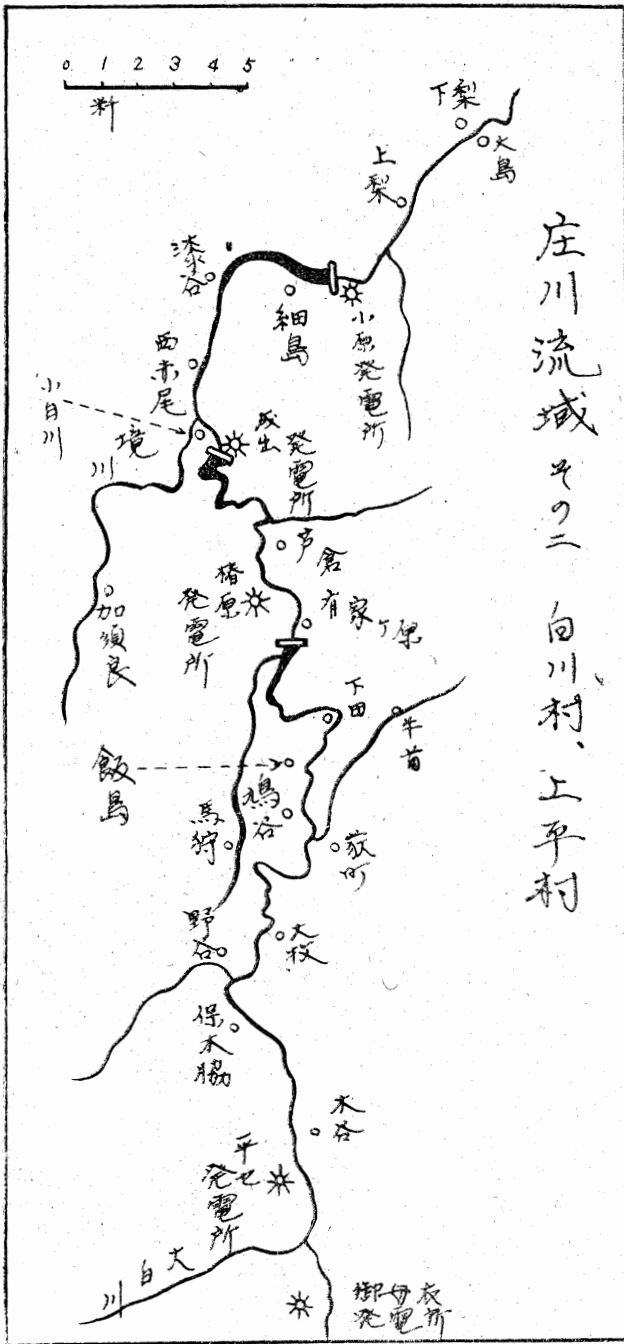 庄川流域 その二 白川村、上平村
0 1 2 3 4 5
粁
下梨
大島
上梨
漆谷
細島
小原発電所
西赤尾
小白川
境川
成出発電所
芦倉
椿原発電所
有家ヶ原
加須良
下田
牛首
飯島
鳩谷
馬狩
荻町
野谷
大牧
保木脇
木谷
平セ発電所
大白川
御母衣発電所